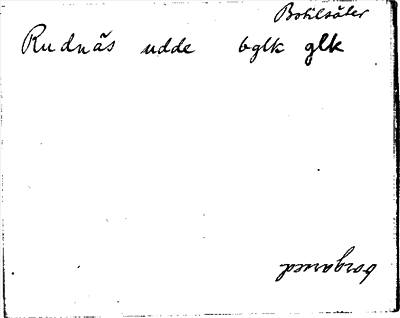 Bokilsäter
Rudnäs udde bglk glk
borgared